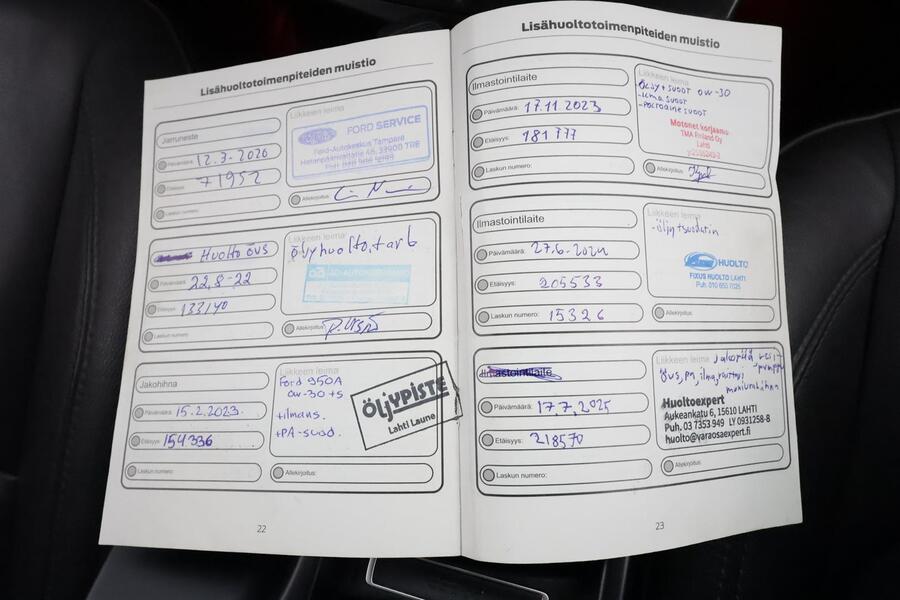 Lisähuoltotoimenpiteiden muistio
Jarruneste
Päivämäärä: 12.3-2020
Etäisyys: 71952
Laskun numero:
Liikkeen leima
FORD SERVICE
Ford-Autokeskus Tampere
Hatanpäänvaltatie 46, 33900 TRE
Allekirjoitus:
Huolto ÖVS
Päivämäärä: 22.8-22
Etäisyys: 133140
Laskun numero:
Liikkeen leima
öljyhuolto, tarb
Allekirjoitus:
Jakohihna
Päivämäärä: 15.2.2023.
Etäisyys: 154336
Laskun numero:
Liikkeen leima
Ford 950A
0w-30 +s
+ilmans.
+PA-suod.
ÖLJYPISTE
Lahti Laune
Allekirjoitus:
22
Lisähuoltotoimenpiteiden muistio
Ilmastointilaite
Päivämäärä: 17.11.2023
Etäisyys: 181777
Laskun numero:
Liikkeen leima
Öljy + suod 0w-30
-ilma suod
-polttoaine suod
Motonet korjaamo
TMA Finland Oy
Lahti
Allekirjoitus:
Ilmastointilaite
Päivämäärä: 27.6.2024
Etäisyys: 205533
Laskun numero: 15326
Liikkeen leima
-öljytsuodatin
HUOLTO
FIXUS HUOLTO LAHTI
Puh. 010 650 7025
Allekirjoitus:
Ilmastointilaite
Päivämäärä: 17.7.2025
Etäisyys: 218570
Laskun numero:
Liikkeen leima
Huoltoexpert
Aukeankatu 6, 15610 LAHTI
Puh. 03 7353 949 LY 0931258-8
huolto@varaosaexpert.fi
Allekirjoitus:
23